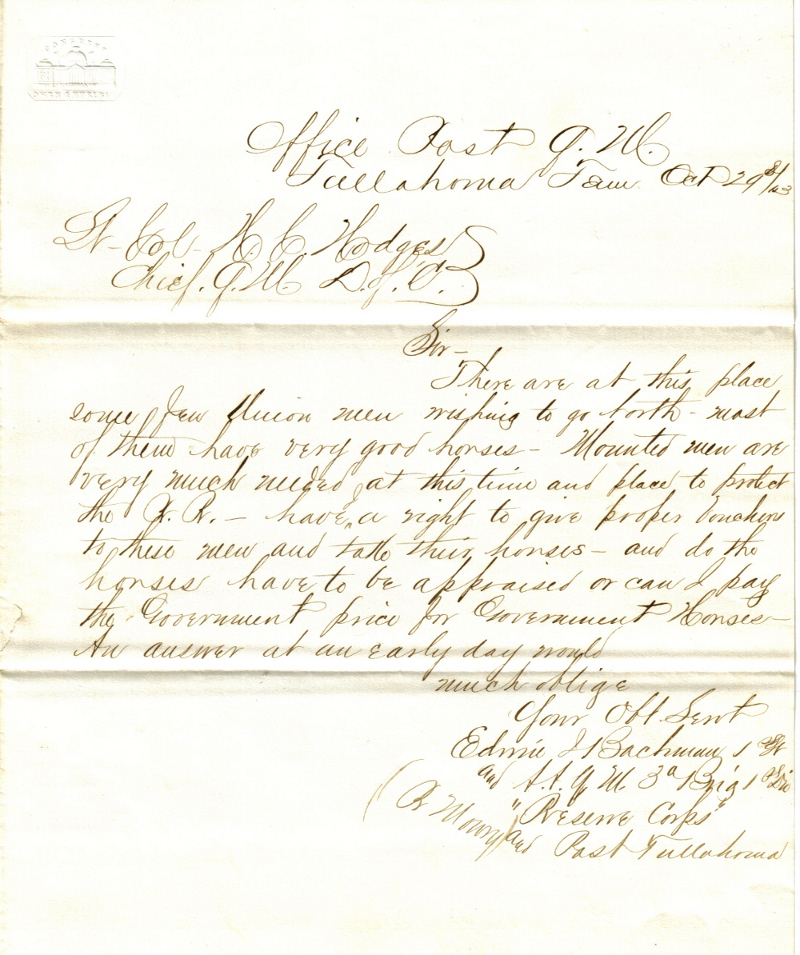 CONGRESS
Office Post Q. M.
Tullahoma Tenn. Oct 29th/63
Lt. Col. H. C. Hodges
Chief. Q. M D. of. C.
Sir -
There are at this place
some few Union men wishing to go North - most
of them have very good horses - Mounted men are
very much needed at this time and place to protect
the R. R. - have I a right to give proper Vouchers
to these men and take their horses - and do the
horses have to be appraised or can I pay
the Government price for Government Horses -
An answer at an early day would
much oblige
Your Obt. Servt
Edwin J Bachman 1st Lt
and A. A. Q M 3d Brig 1st Div
"Reserve Corps"
and Post Tullahoma